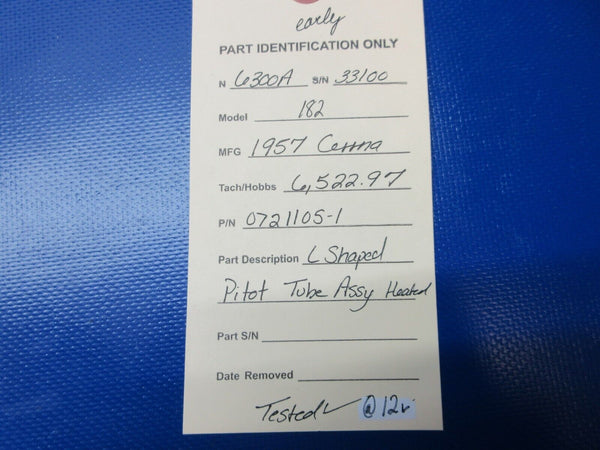 early
PART IDENTIFICATION ONLY
N 6300A S/N 33100
Model 182
MFG 1957 Cessna
Tach/Hobbs 6,522.97
P/N 0721105-1
Part Description L Shaped
Pitot Tube Assy Heated
Part S/N
Date Removed
Tested ✓ @12v